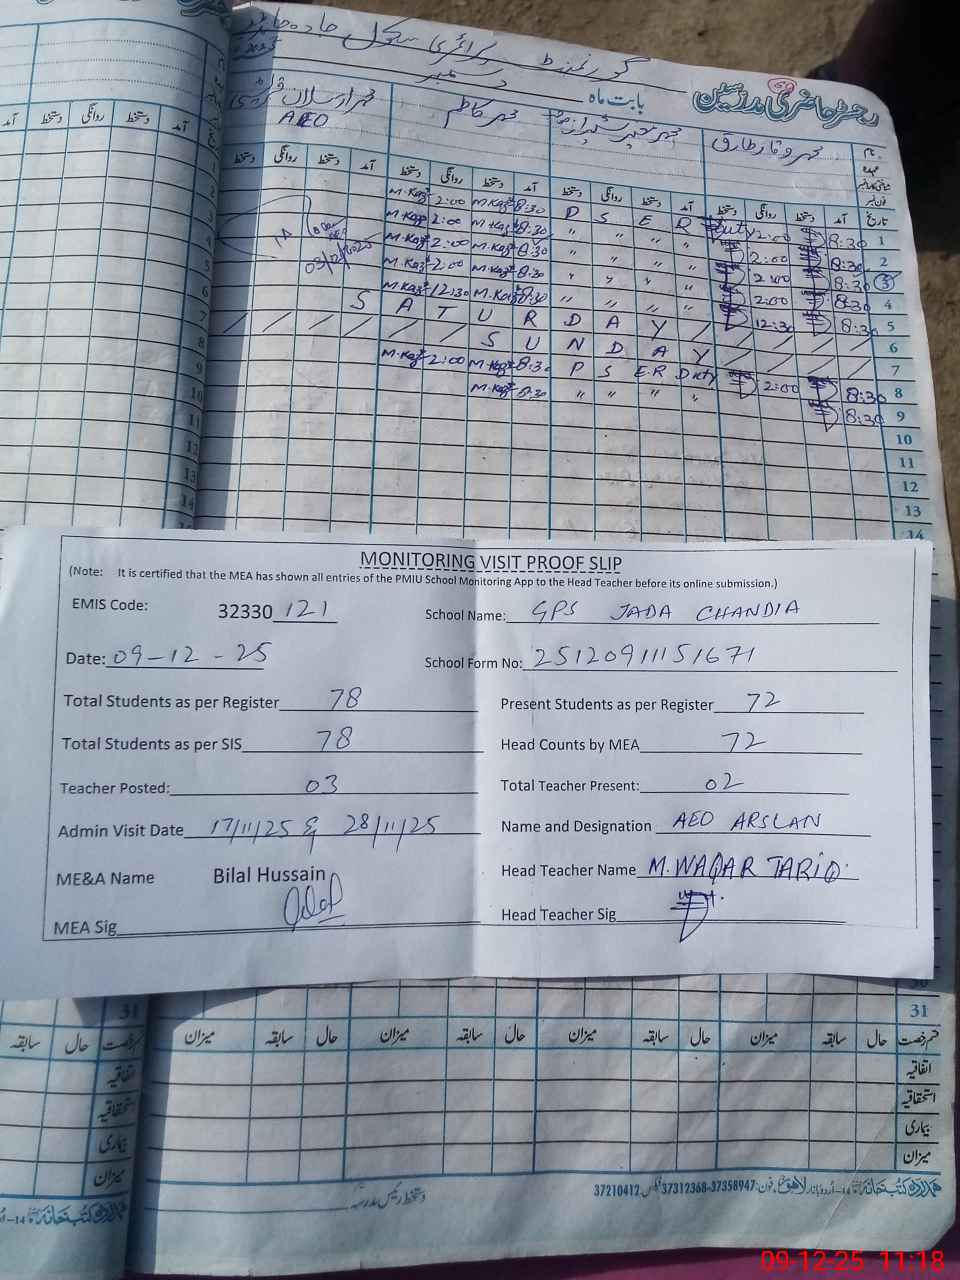 گورنمنٹ پرائمری سکول جادہ چانڈیہ
رجسٹر حاضری مدرسین
بابت ماہ دسمبر 2025
نام
محمد وقار طارق
محمد کاظم
محمد ارسلان قریشی
AEO
عہدہ
تاریخ آمد دستخط روانگی دستخط آمد دستخط روانگی دستخط آمد دستخط روانگی دستخط آمد دستخط روانگی دستخط
1 8:30 2:00 Duty P S E R 8:30 M.Kaz 2:00 M.Kaz
2 8:30 2:00 " " " " 8:30 M.Kaz 2:00 M.Kaz
3 8:30 2:00 " " " " 8:30 M.Kaz 2:00 M.Kaz
4 8:30 2:00 " " " " 8:30 M.Kaz 2:00 M.Kaz
5 8:30 12:30 " " " " 8:30 M.Kaz 12:30 M.Kaz
6 S A T U R D A Y
7 S U N D A Y
8 8:30 2:00 P S E R Duty 8:30 M.Kaz 2:00 M.Kaz
9 8:30 " " " " 8:30 M.Kaz
10
11
12
13
14
MONITORING VISIT PROOF SLIP
(Note: It is certified that the MEA has shown all entries of the PMIU School Monitoring App to the Head Teacher before its online submission.)
EMIS Code: 32330 121 School Name: GPS JADA CHANDIA
Date: 09-12-25 School Form No: 25120911151671
Total Students as per Register 78 Present Students as per Register 72
Total Students as per SIS 78 Head Counts by MEA 72
Teacher Posted: 03 Total Teacher Present: 02
Admin Visit Date 17/11/25 & 28/11/25 Name and Designation AEO ARSLAN
ME&A Name Bilal Hussain Head Teacher Name M.WAQAR TARIQ.
MEA Sig Head Teacher Sig
30
31
قسم رخصت حال سابقہ میزان حال سابقہ میزان حال سابقہ میزان حال سابقہ میزان
اتفاقیہ
استحقاقیہ
بیماری
میزان
دستخط رئیس مدرسہ
ہمدرد کتب خانہ 14-اردو بازار لاہور فون: 37358947-37312368 فیکس: 37210412
09-12-25 11:18